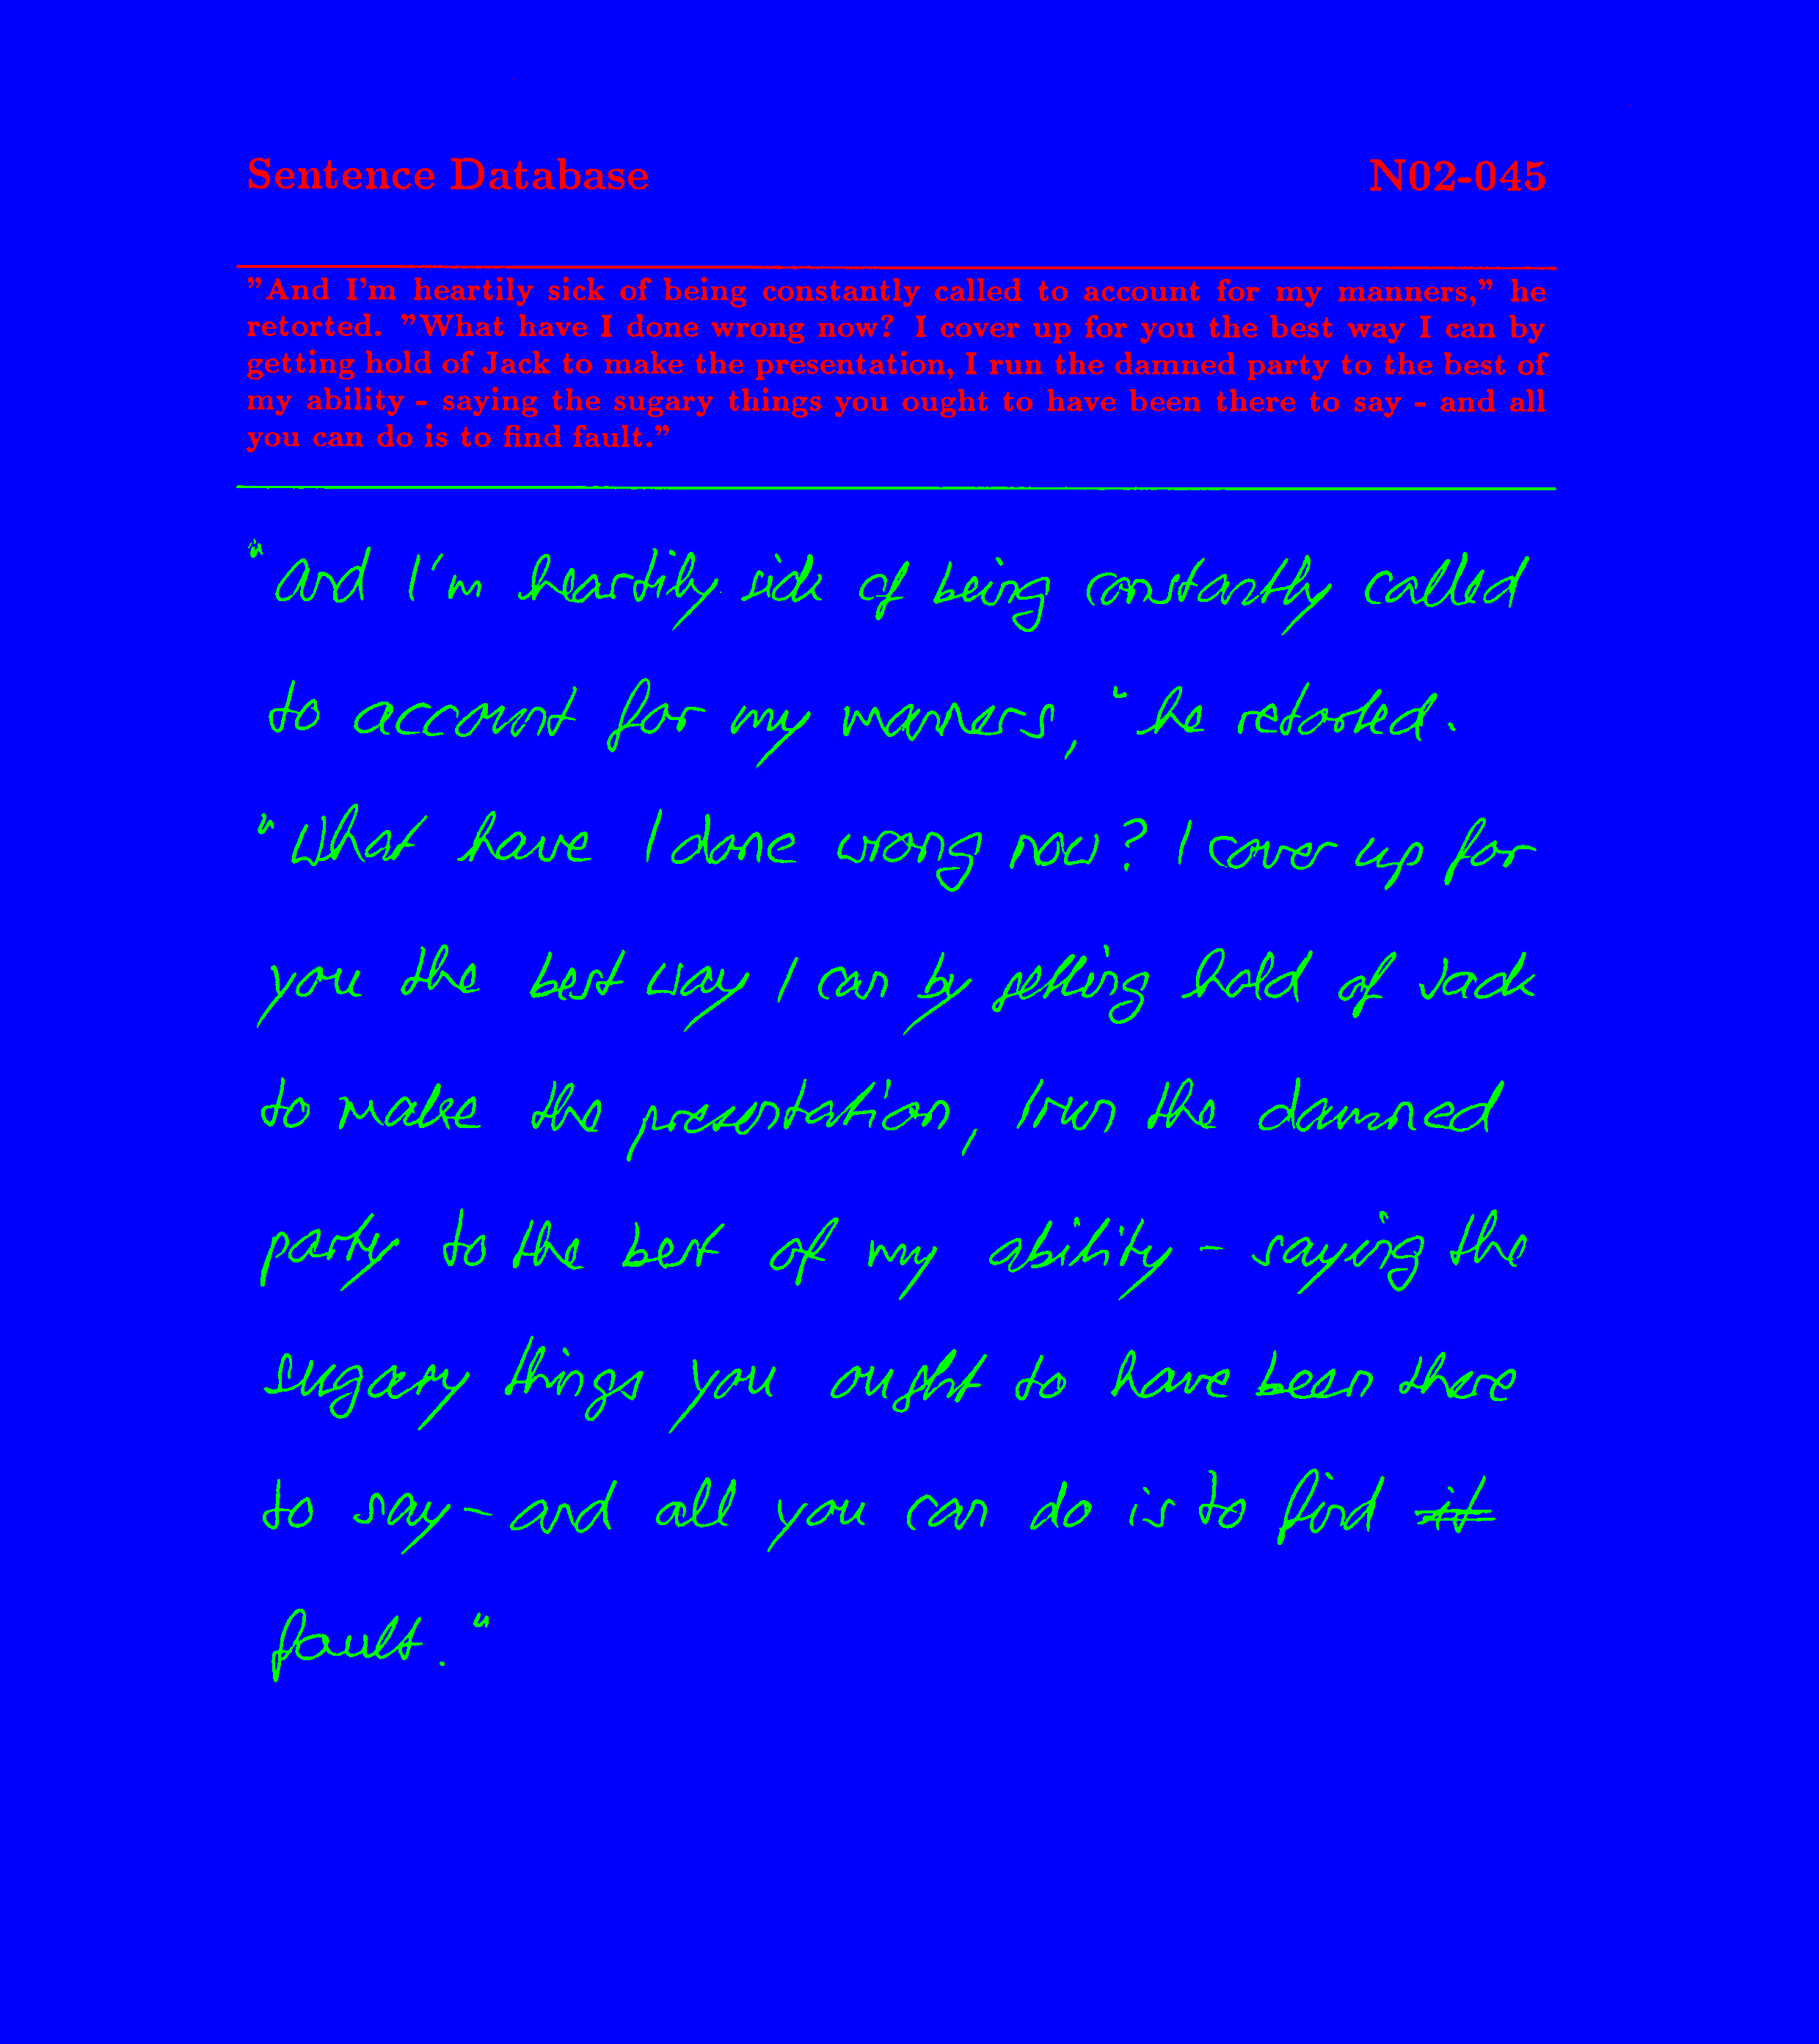 Sentence Database N02-045
"And I'm heartily sick of being constantly called to account for my manners," he
retorted. "What have I done wrong now? I cover up for you the best way I can by
getting hold of Jack to make the presentation, I run the damned party to the best of
my ability - saying the sugary things you ought to have been there to say - and all
you can do is to find fault."
"And I'm heartily sick of being constantly called
to account for my manners, "he retorted.
"What have I done wrong now? I cover up for
you the best way I can by getting hold of Jack
to make the presentation, I run the damned
party to the best of my ability - saying the
sugary things you ought to have been there
to say - and all you can do is to find it
fault."